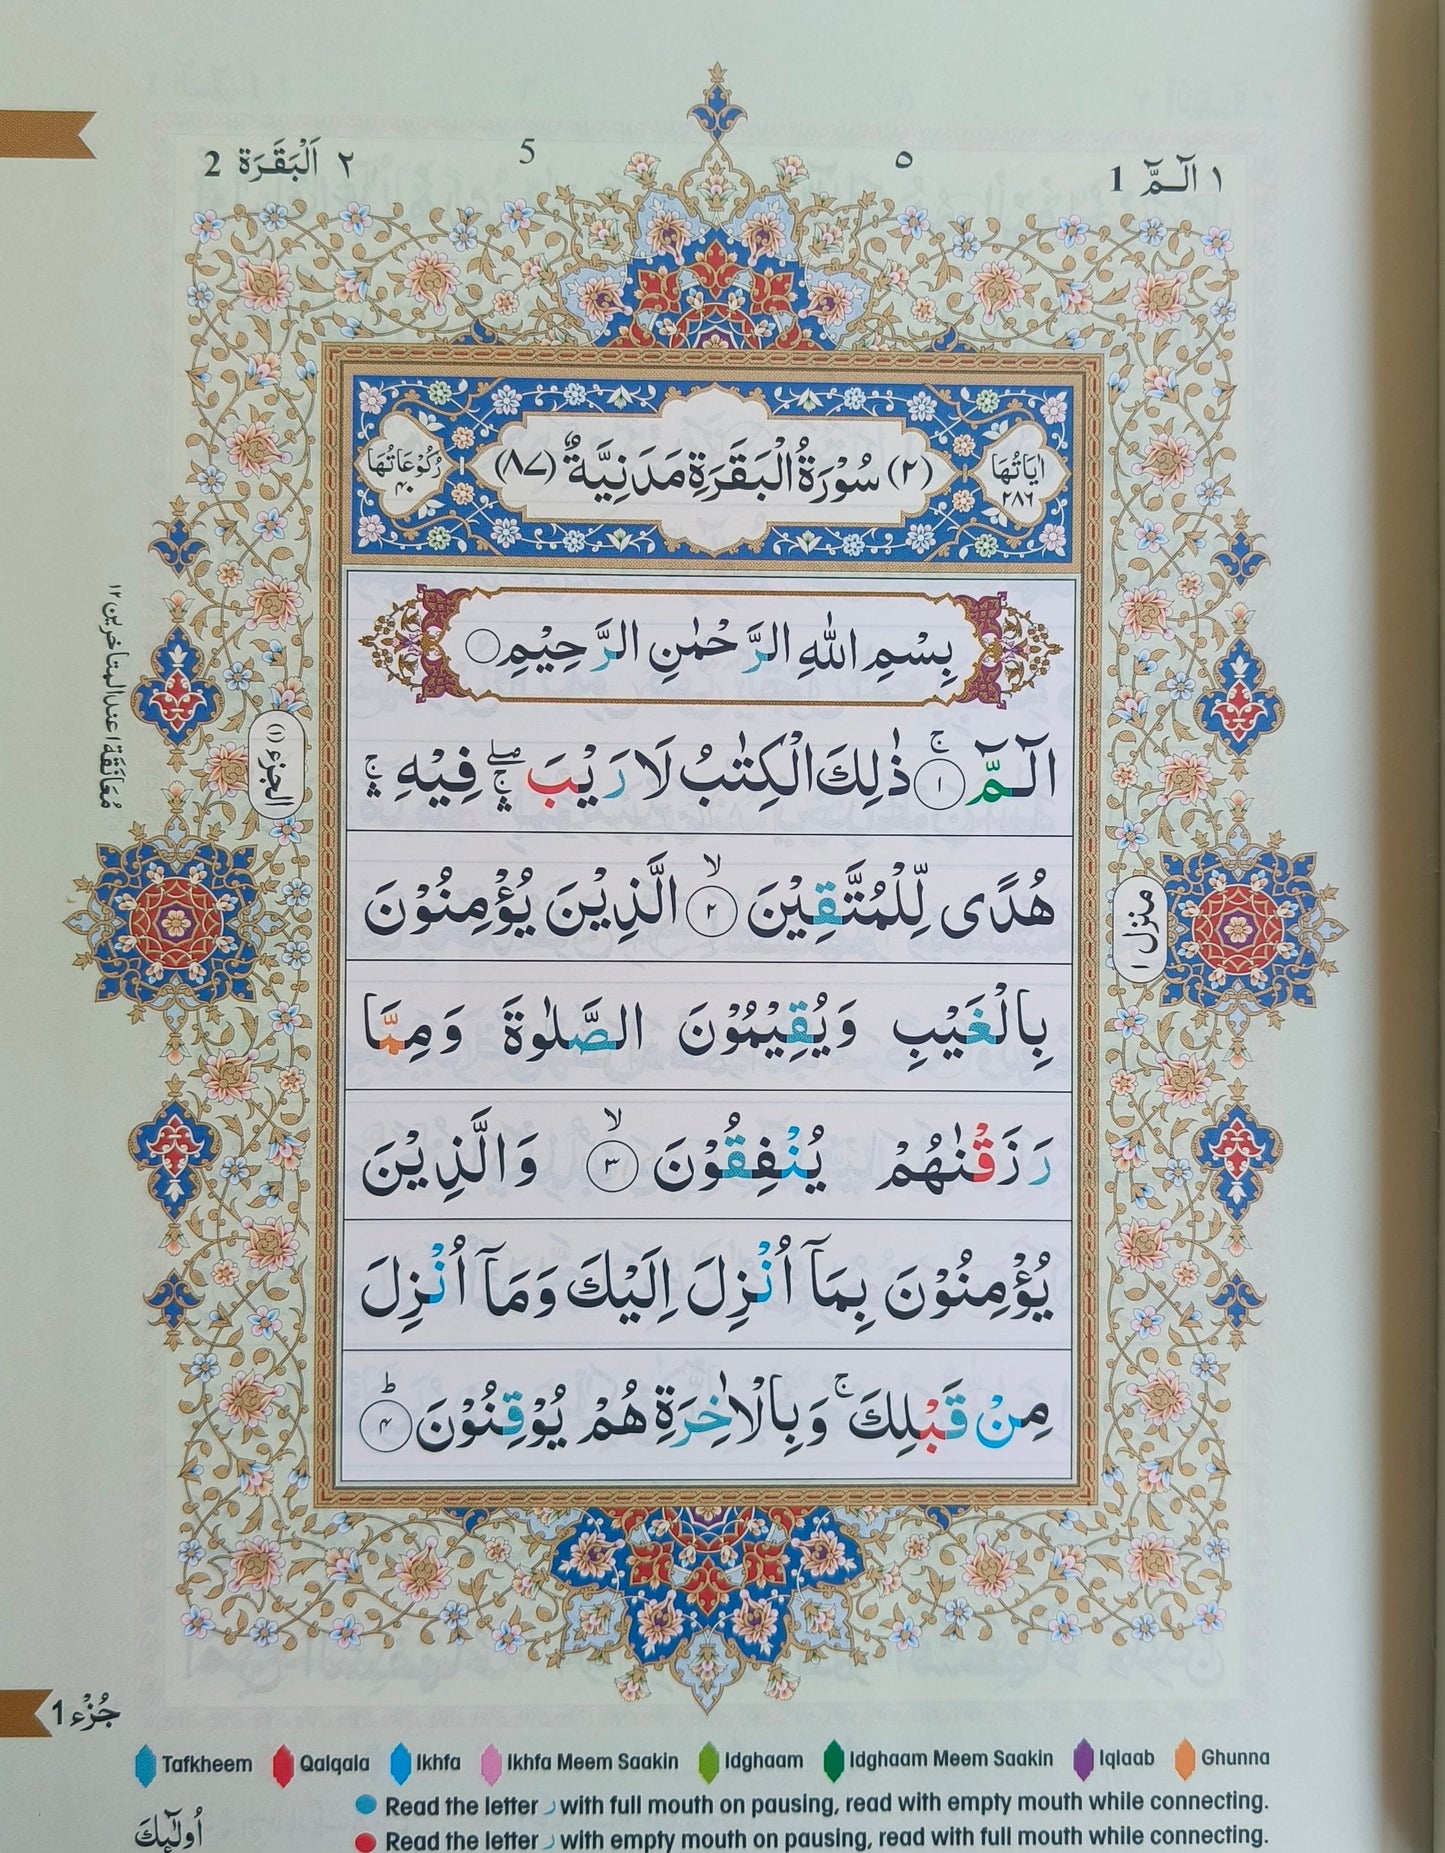 ١ الٓـمّٓ 1
٥
5
٢ اَلْبَقَرَة 2
اٰيَاتُهَا ٢٨٦
(٢) سُوْرَةُ الْبَقَرَةِ مَدَنِيَّةٌ (٨٧)
رُكُوْعَاتُهَا ٤٠
بِسْمِ اللهِ الرَّحْمٰنِ الرَّحِيْمِ
الٓـمّٓ ۚ ﴿١﴾ ذٰلِكَ الْكِتٰبُ لَا رَيْبَ ۖۚۛ فِيْهِ ۚۛ
هُدًى لِّلْمُتَّقِيْنَ ۙ ﴿٢﴾ الَّذِيْنَ يُؤْمِنُوْنَ
بِالْغَيْبِ وَيُقِيْمُوْنَ الصَّلٰوةَ وَمِمَّا
رَزَقْنٰهُمْ يُنْفِقُوْنَ ۙ ﴿٣﴾ وَالَّذِيْنَ
يُؤْمِنُوْنَ بِمَآ اُنْزِلَ اِلَيْكَ وَمَآ اُنْزِلَ
مِنْ قَبْلِكَ ۚ وَبِالْاٰخِرَةِ هُمْ يُوْقِنُوْنَ ؕ ﴿٤﴾
منزل ١
الجزء (١)
مُعَانَقَة ١ عند المتاخرين ١٢
جُزْء 1
Tafkheem Qalqala Ikhfa Ikhfa Meem Saakin Idghaam Idghaam Meem Saakin Iqlaab Ghunna
Read the letter ر with full mouth on pausing, read with empty mouth while connecting.
Read the letter ر with empty mouth on pausing, read with full mouth while connecting.
اُولٰٓئِكَ